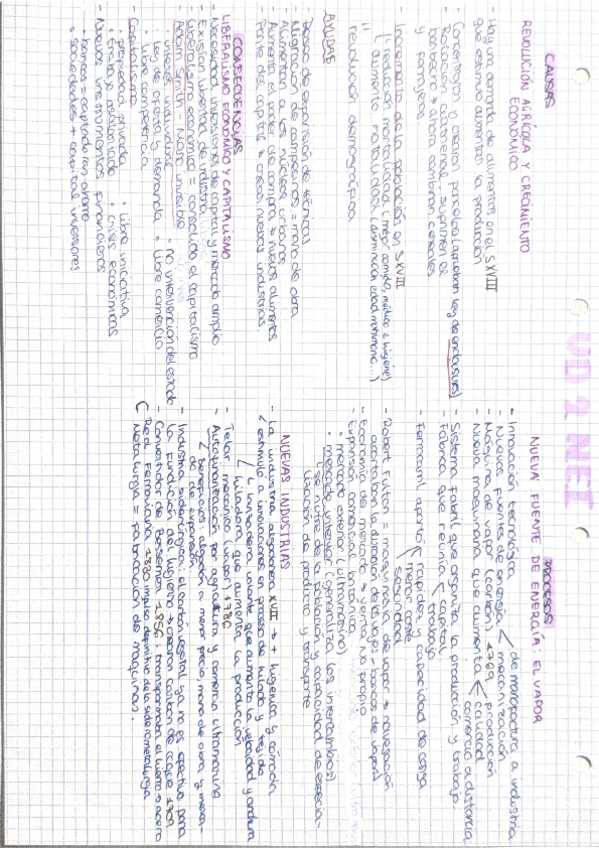 UD 2 NEI
CAUSAS
REVOLUCIÓN AGRÍCOLA Y CRECIMIENTO
ECONÓMICO
- Mayor demanda de alimentos en el S XVIII
que estimuló aumentos la producción
- Concentraron y crearon parcelas (aprueban ley de enclosures)
- Rotación cuatrienal: suprimen el
barbecho → ahora combinan cereales
y forrajeras.
- Incremento de la población en S XVIII
( reducción mortalidad (mejor comida, médico e higiene)
aumento natalidad (disminución edad matrimonio...)
"
revolución demográfica
AYUDAS
- Base de expansión de técnica
- Migración campesinos = mano de obra
- Alimentar a los núcleos urbanos
- Aumenta el poder de compra → nuevos alimentos
- Parte del capital → creas nuevas industrias
CONSECUENCIAS
LIBERALISMO ECONÓMICO Y CAPITALISMO
- Necesidad inversiones de capital y mercado amplio
- Existían libertad de industria
- Liberalismo económico = consolida el capitalismo
- Adam Smith - Mano invisible
• interés individual • no intervención del estado
• ley de oferta y demanda • libre comercio
• libre competencia
- Capitalismo
• propiedad privada • libre iniciativa
• trabajo asalariado • crisis económicas
- Nuevos instrumentos financieros
• bancos = captadores ahorro
• sociedades = capital inversores
PROCESOS
NUEVA FUENTE DE ENERGÍA: EL VAPOR
- Innovación tecnológica < de manufactura a industria
mecanización
- Nuevas fuentes de energía
- Máquina de vapor (carbón) 1769
- Nueva maquinaria que aumenta < producción
calidad
comercio a distancia
- Sistema fabril que organiza la producción y trabajo.
- Fábrica que reunía < capital
trabajo
- Ferrocarril aportó < rapidez y capacidad de carga
menor coste
seguridad
- Robert Fulton = maquinaria de vapor → navegación
acortaban la duración del viaje - barcos de vapor
- Economía de mercado → venta No propio
- Expansión comercial británica
• mercado exterior (ultramarino)
• mercado interior (generaliza los intercambios)
(se nutre de la población y capacidad de especia-
lización de producto y transporte
NUEVAS INDUSTRIAS
- La industria algodonera XVIII → + higiénica y cómoda
< estimuló a innovaciones en proceso de hilado y tejido
↳ lanzadera volante que aumentó la velocidad y anchura
↳ hiladora que aumenta la producción
- Telar mecánico (vapor) 1785
- Autoalimentación por agricultura y comercio ultramarino
↳ beneficios: algodón a menor precio, mano de obra y merca-
do de expansión
- Industria siderúrgica: el carbón vegetal ya no es efectivo para
la fundición del hierro → crearon carbón de coque 1709
- Convertidor de Bessemer 1856: transformaba el hierro → acero
- Red Ferroviaria 1830 impulso definitivo de la siderometalurgia
( Metalurgia = fabricación de maquinas.